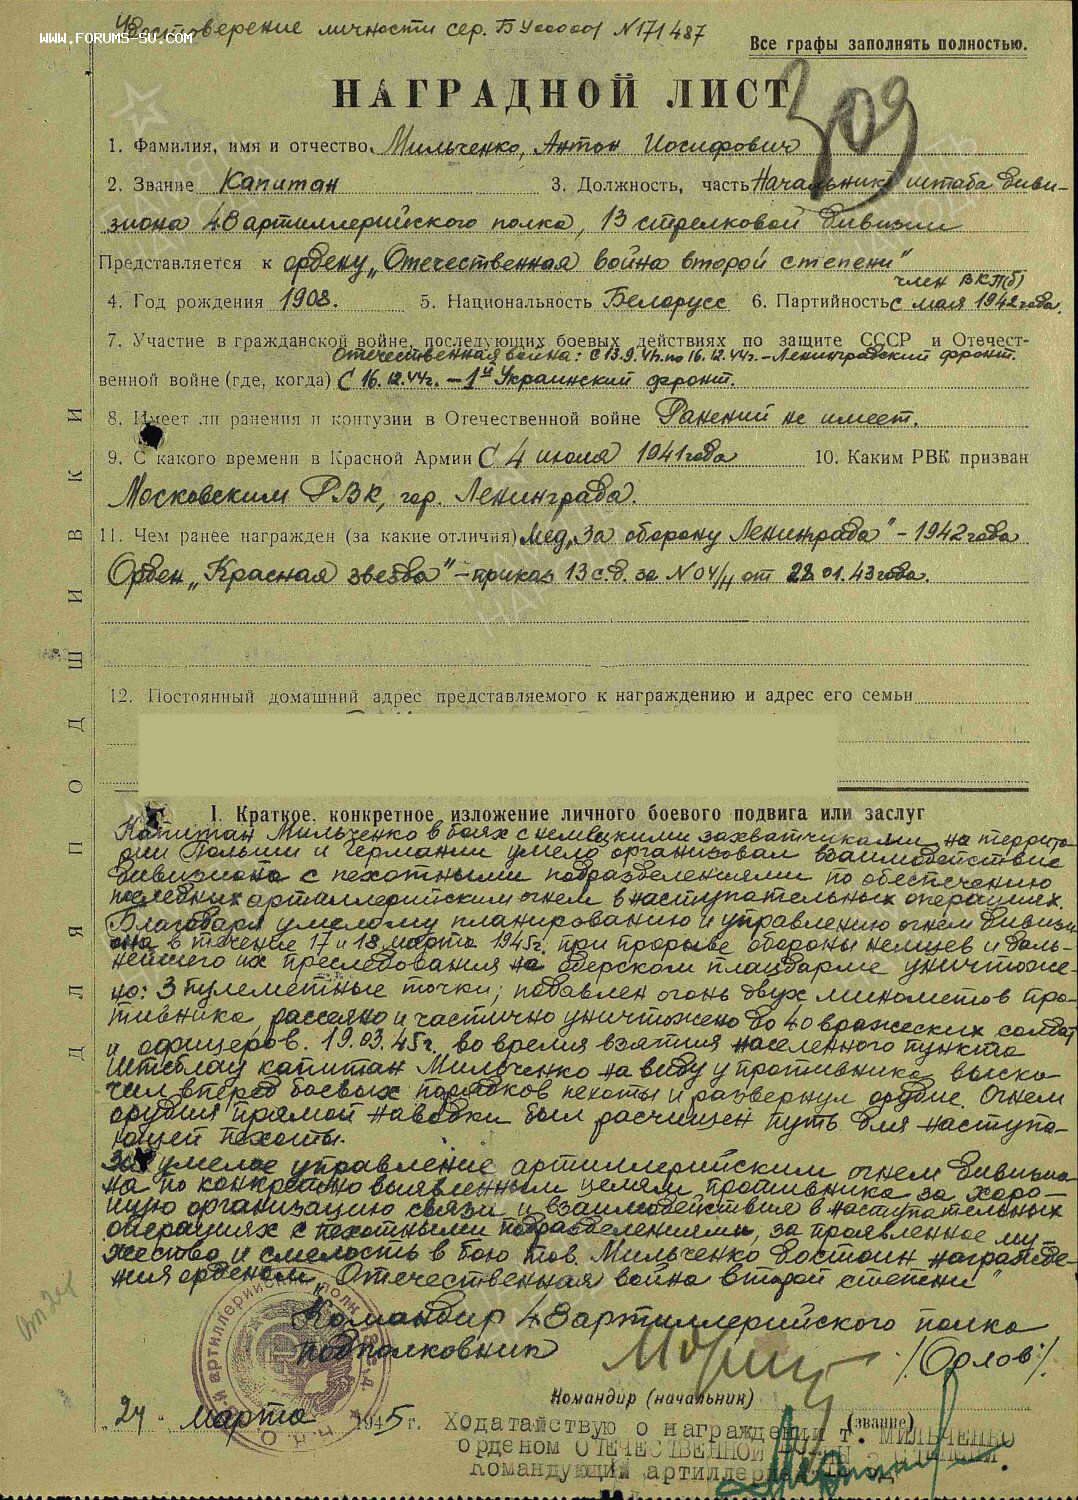 Удостоверение личности сер. Б У000001 N171487
WWW.FORUMS-SU.COM
Все графы заполнять полностью.
НАГРАДНОЙ ЛИСТ
509
1. Фамилия, имя и отчество Мильченко, Антон Иосифович
2. Звание Капитан 3. Должность, часть Начальник штаба диви-
зиона 48 артиллерийского полка, 13 стрелковой дивизии
Представляется к ордену „Отечественная война второй степени"
член ВКП(б)
4. Год рождения 1908. 5. Национальность Белорусс 6. Партийность с мая 1942 года.
7. Участие в гражданской войне, последующих боевых действиях по защите СССР и Отечест-
Отечественная война: с 13.9.41г. по 16.12.44г. – Ленинградский фронт.
венной войне (где, когда) С 16.12.44г. – 1й Украинский фронт.
8. Имеет ли ранения и контузии в Отечественной войне Ранений не имеет.
9. С какого времени в Красной Армии С 4 июля 1941 года 10. Каким РВК призван
Московским РВК, гор. Ленинграда.
11. Чем ранее награжден (за какие отличия) Мед. „За оборону Ленинграда" – 1942 года
Орден „Красная звезда" – приказ 13 с.д. за N 04/н от 28.01.43 года.
12. Постоянный домашний адрес представляемого к награждению и адрес его семьи
I. Краткое, конкретное изложение личного боевого подвига или заслуг
Капитан Мильченко в боях с немецкими захватчиками на террито-
рии Польши и Германии умело организовал взаимодействие
дивизиона с пехотными подразделениями по обеспечению
последних артиллерийским огнем в наступательных операциях.
Благодаря умелому планированию и управлению огнем дивизи-
она в течение 17 и 18 марта 1945г. при прорыве обороны немцев и даль-
нейшего их преследования на одерском плацдарме уничтоже-
но: 3 пулеметные точки; подавлен огонь двух минометов про-
тивника, рассеяно и частично уничтожено до 40 вражеских солдат
и офицеров. 19.03.45г. во время взятия населенного пункта
капитан Мильченко на виду у противника выско-
чил вперед боевых порядков пехоты и развернул орудие. Огнем
орудия прямой наводки был расчищен путь для наступа-
ющей пехоты.
За умелое управление артиллерийским огнем дивизио-
на по конкретно выявленным целям противника за хоро-
шую организацию связи и взаимодействие в наступательных
операциях с пехотными подразделениями, за проявленное му-
жество и смелость в бою тов. Мильченко достоин награжде-
ния орденом „Отечественная война второй степени"
Командир 48 артиллерийского полка
подполковник /Орлов/.
Командир (начальник)
„24" марта 1945 г. (звание)
Ходатайствую о награждении т. МИЛЬЧЕНКО
орденом ОТЕЧЕСТВЕННОЙ ВОЙНЫ 2 СТЕПЕНИ.
Командующий артиллерией
ДЛЯ ПОДШИВКИ